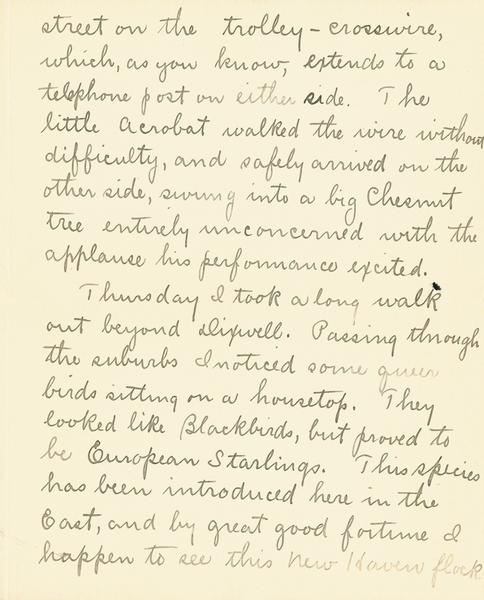 street on the trolley-crosswire,
which, as you know, extends to a
telephone post on either side. The
little Acrobat walked the wire without
difficulty, and safely arrived on the
other side, swung into a big Chesnut
tree entirely unconcerned with the
applause his performance excited.
Thursday I took a long walk
out beyond Dixwell. Passing through
the suburbs I noticed some queer
birds sitting on a housetop. They
looked like Blackbirds, but proved to
be European Starlings. This species
has been introduced here in the
East, and by great good fortune I
happen to see this New Haven flock